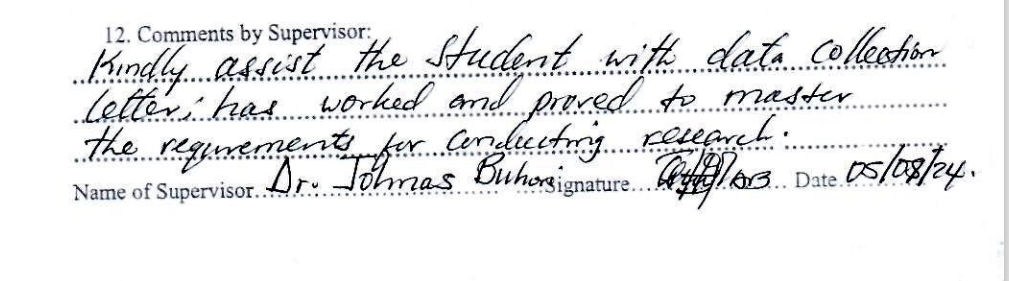 12. Comments by Supervisor:
Kindly assist the Student with data collection
letter; has worked and proved to master
the requirements for conducting research.
Name of Supervisor. Dr. Johmas Buhori Signature... Date 05/08/24.